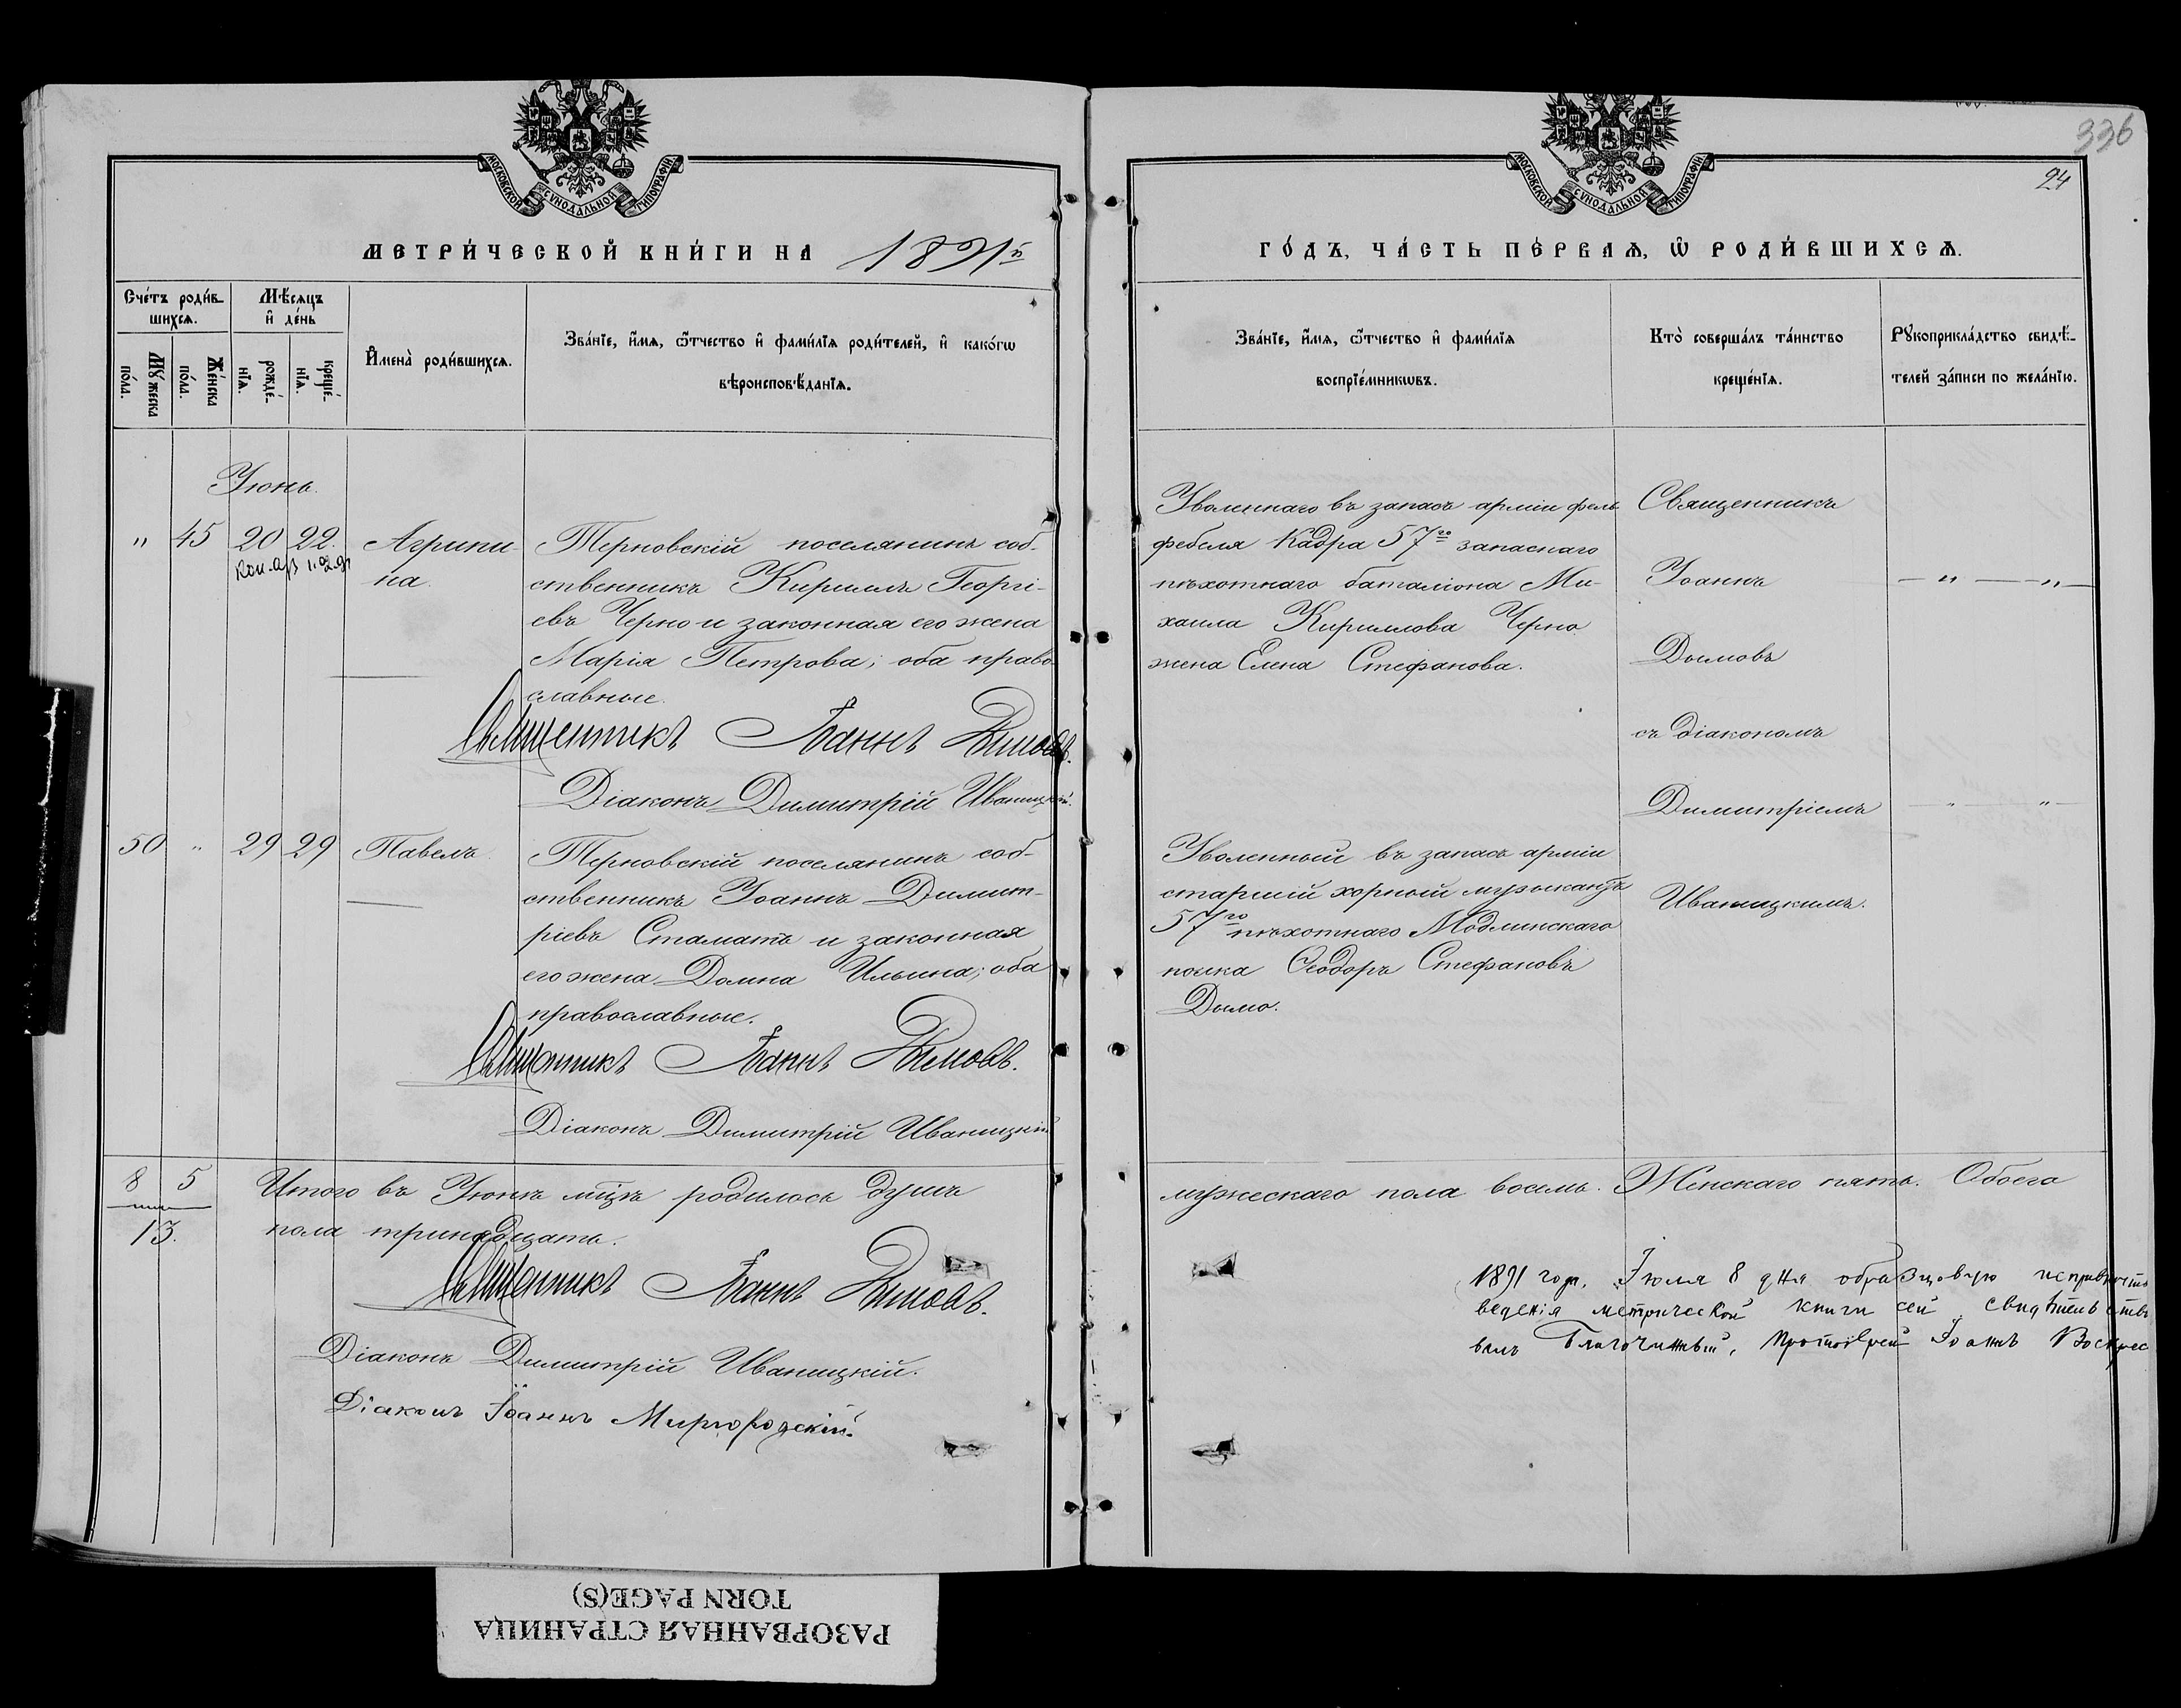 336
24
МОСКОВСКОЙ СѴНОДАЛЬНОЙ ТИПОГРАФІИ
МОСКОВСКОЙ СѴНОДАЛЬНОЙ ТИПОГРАФІИ
МЕТРИ́ЧЕСКОЙ КНИ́ГИ НА 1891й
ГО́ДЪ, ЧА́СТЬ ПЕ́РВАѦ, Ѡ҆ РОДИ́ВШИХСѦ.
Счётъ роди́в-
шихсѧ.
Мѹ́жеска
по́ла.
Же́нска
по́ла.
Мѣ́сѧцъ
и҆ де́нь
рожде́-
нїѧ.
креще́-
нїѧ.
И҆мена̀ роди́вшихсѧ.
Зва́нїе, и҆́мѧ, ѻ҆́тчество и҆ фами́лїѧ роди́телей, и҆ како́гѡ
вѣроисповѣ́данїѧ.
Зва́нїе, и҆́мѧ, ѻ҆́тчество и҆ фами́лїѧ
воспрїе́мникѡвъ.
Кто̀ соверша́лъ та́инство
креще́нїѧ.
Рꙋкоприкла́дство свидѣ́-
телей за́писи по жела́нїю.
Іюнь.
" 45 20 22. Агрипи-
на.
Терновскій поселянинъ соб-
ственникъ Кириллъ Георгі-
евъ Черно и законная его жена
Марія Петрова; оба право-
славные.
Священникъ Іоаннъ Дымовъ.
Діаконъ Димитрій Иваницкій.
Уволеннаго въ запасъ арміи фель-
фебеля Кадра 57го запаснаго
пѣхотнаго баталіона Ми-
хаила Кириллова Черно
жена Елена Стефанова.
Священникъ
Іоаннъ
Дымовъ
съ діакономъ
Димитріемъ
Иваницкимъ.
— " — " —
50 " 29 29 Павелъ
Терновскій поселянинъ соб-
ственникъ Іоаннъ Димит-
ріевъ Стаматъ и законная
его жена Домна Ильина; оба
православные.
Священникъ Іоаннъ Дымовъ.
Діаконъ Димитрій Иваницкій
Уволенный въ запасъ арміи
старшій хорный музыкантъ
57го пѣхотнаго Модлинскаго
полка Ѳеодоръ Стефановъ
Дымо.
— " — " —
8 5 Итого въ Іюнѣ мцѣ родилось душъ мужескаго пола восемь. Женскаго пять. Обоего
13. пола тринадцать.
Священникъ Іоаннъ Дымовъ.
Діаконъ Димитрій Иваницкій.
Діаконъ Іоаннъ Миргородскій.
1891 года. Іюля 8 дня образцовую исправность
веденія метрической книги сей свидѣтельство
валъ Благочинный, Протоіерей Іоаннъ
РАЗОРВАННАЯ СТРАНИЦА
TORN PAGE(S)